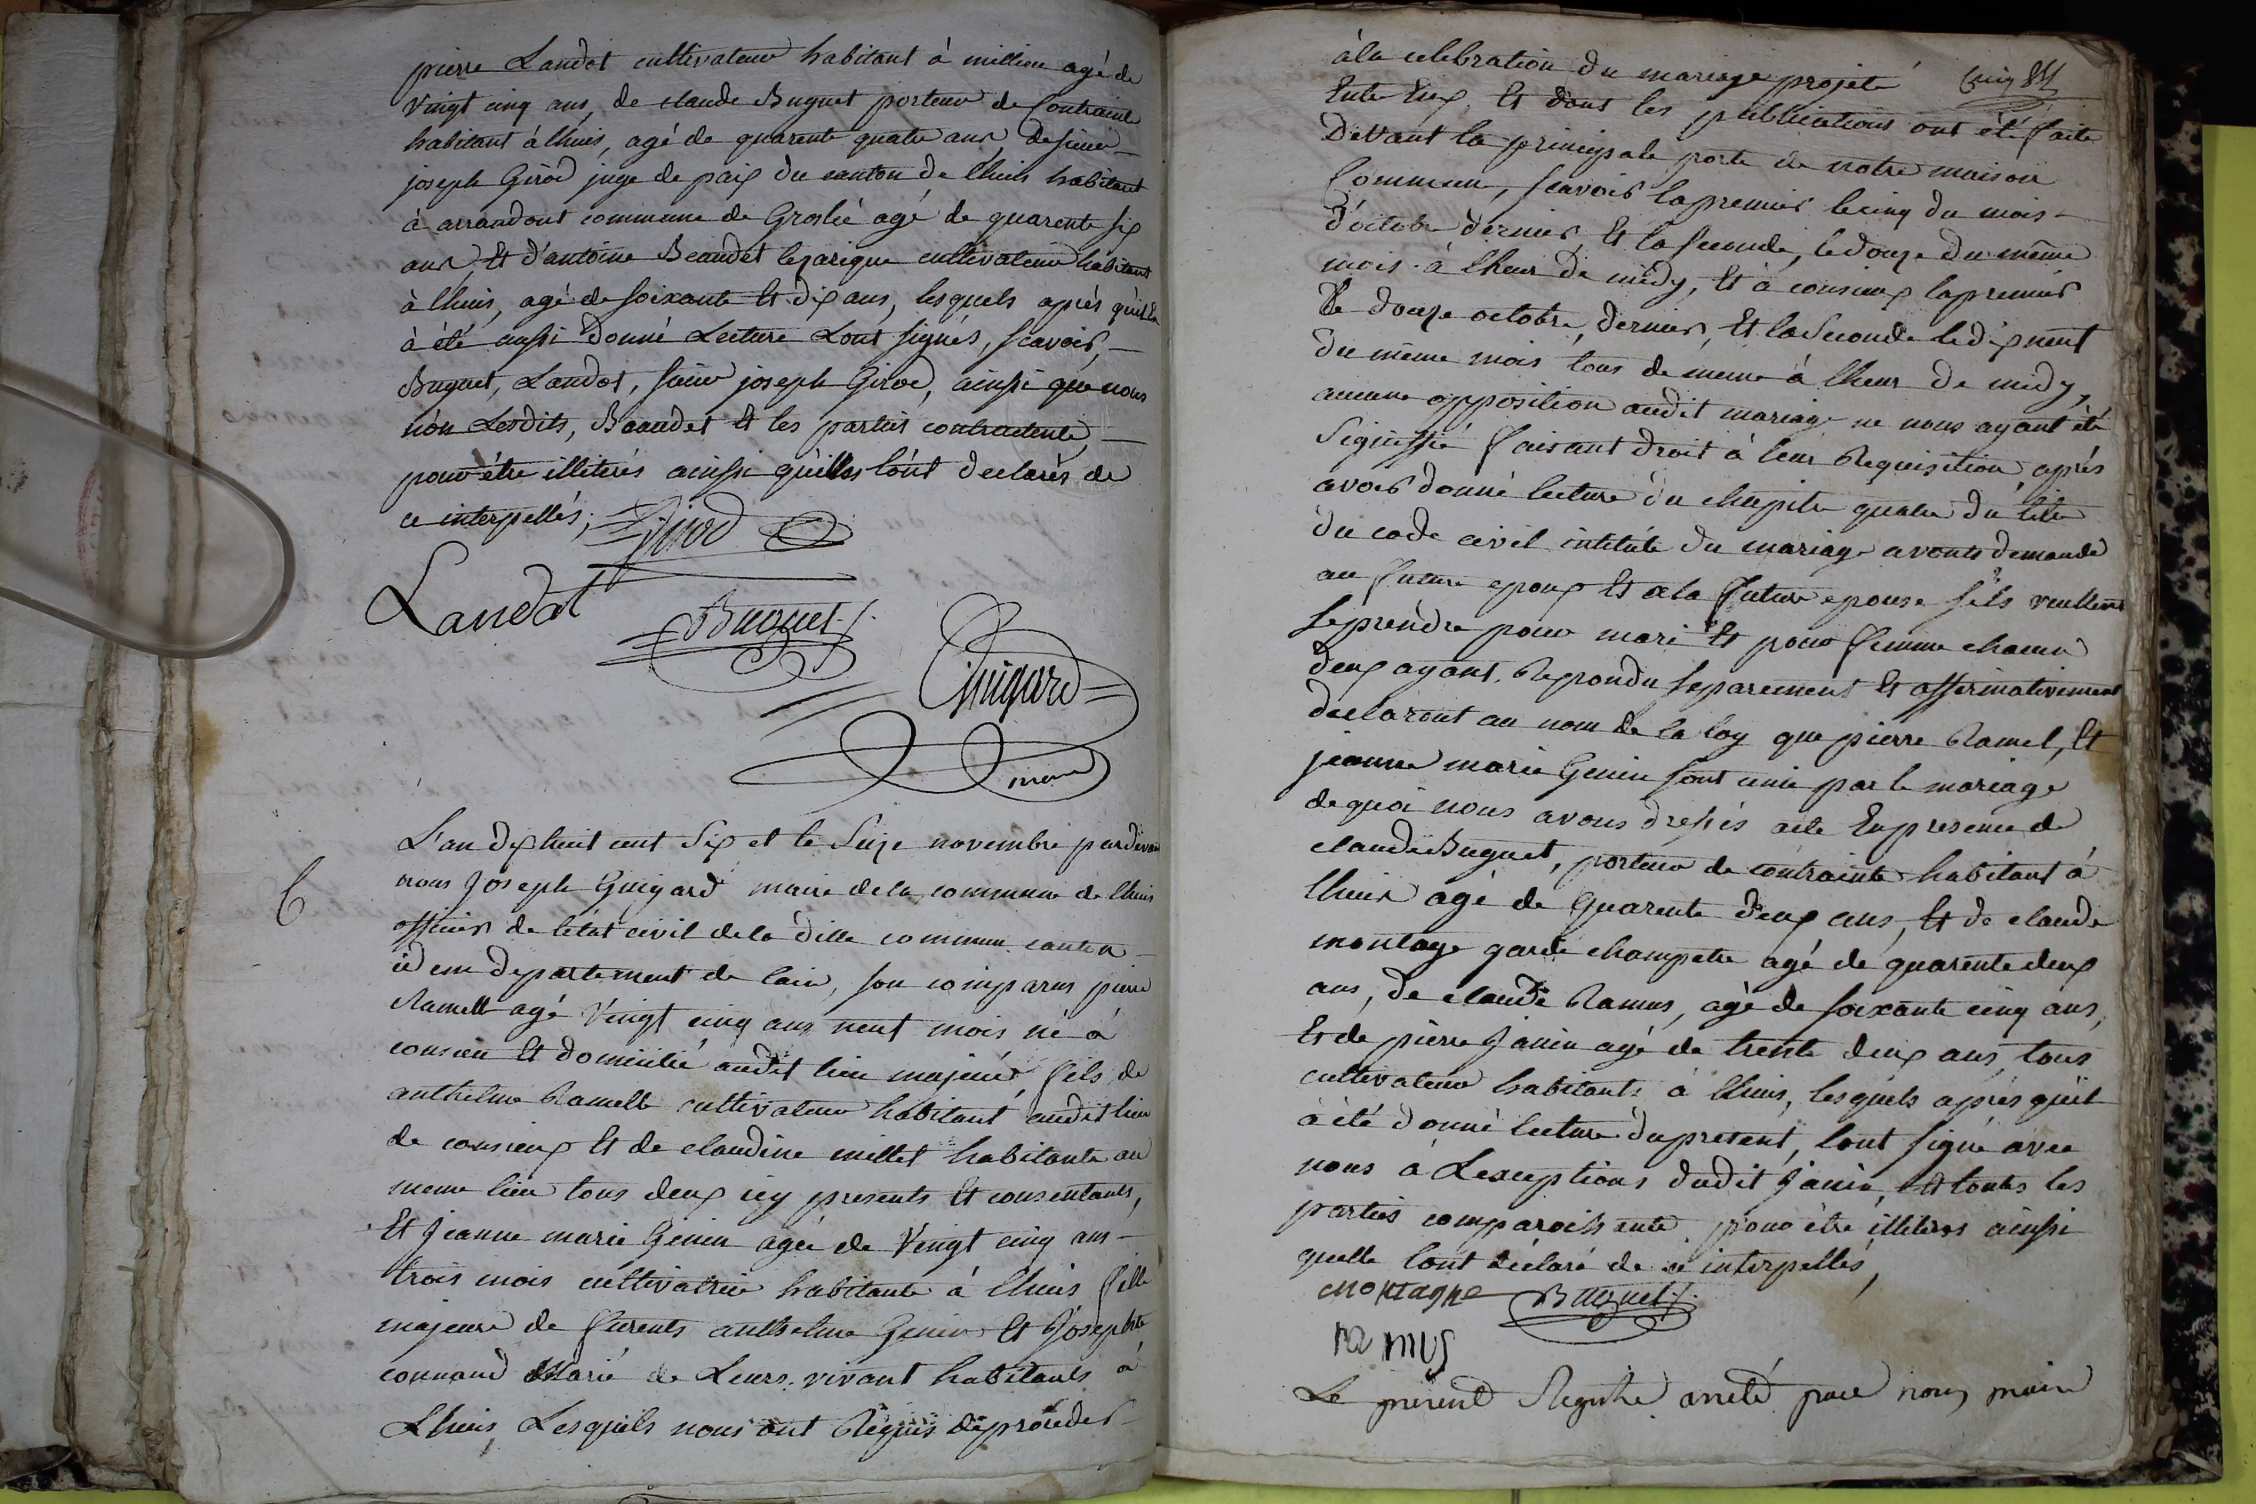 pierre Landot cultivateur habitant à millieu agé de
vingt cinq ans, de claude Buguet porteur de Contrainte
habitant à lhuis, agé de quarente quatre ans, de sieur
joseph Girod juge de paix du canton de lhuis habitant
à arrandont commune de Groslée agé de quarente six
ans, Et d'antoine Beaudet cultivateur habitant
à lhuis, agé de soixante Et dix ans, lesquels aprés qu'il en
à été aussi donné Lecture Lont signés, scavoir,
Buguet, Landot, sieur joseph Girod, ainsi que nous
non Lesdits, Beaudet Et les parties contractente,
pour être illiterés ainssi quilles lont declarés de
ce interpellés;
Girod
Landot
Buguet
Guigard
maire
6
L'an dix huit cent Six et le Seize novembre pardevant
nous Joseph Guigard maire de la commune de lhuis
officier de létat civil de la ditte commune canton
idem departement de lain, son comparus pierre
Ramell agé Vingt cinq ans neuf mois né à
consieu Et domicilié audit lieu majeur, fils de
anthelme Ramell cultivateur habitant audit lieu
de consieux Et de claudine millet habitante au
meme lieu tous deux icy presents Et consentants,
Et Jeanne marie Genin agée de Vingt cinq ans
trois mois cultivatrice habitante à lhuis fille
majeure de furents anthelme Genin Et Josephte
connand Marié de Leurs vivant habitants à
Lhuis, Lesquels nous ont Requis de proceder
à la celebration du mariage projeté
Entre Eux, Et dont les publications ont été faite
Devant la principale porte de notre maison
Commune, scavoir la premier le cinq du mois
d'octobre dernier, Et la seconde, le douze du même
mois à lheur de midy, Et à consieux la premier
le douze octobre, dernier, Et la Seconde le dix neuf
du même mois tous de meme à lheur de midy,
aucune opposition audit mariage ne nous ayant été
Signiffié faisant droit à leur Requisition aprés
avoir donné lecture du chapitre quatre du titre
du code civil intitulé du mariage avonts demandé
au future epoux Et a la future epouse sils veullent
se prendre pour mari Et pour femme chacun
deux ayant Repondu separement Et affirmativement
declaront au nom de la loy que pierre Ramel, Et
jeanne marie Genin sont unie par le mariage
de quoi nous avons dressés acte En presence de
claude Buguet, porteur de contrainte habitant à
lhuis agé de quarente deux ans, Et de claude
montage garde champetre agé de quarente deux
ans, de claude Ramus, agé de soixante cinq ans,
Et de pierre Janin agé de trente deux ans, tous
cultivateur habitants à lhuis, lesquels aprés quil
à été donné lecture du present, lont signé avec
nous à Lexceptions dudit Janin, Et toutes les
parties comparoissente pour être illiteres ainssi
quelle lont déclaré de ce interpellés,
montagne Buguet
ramus
Le present Registre arreté par nous maire